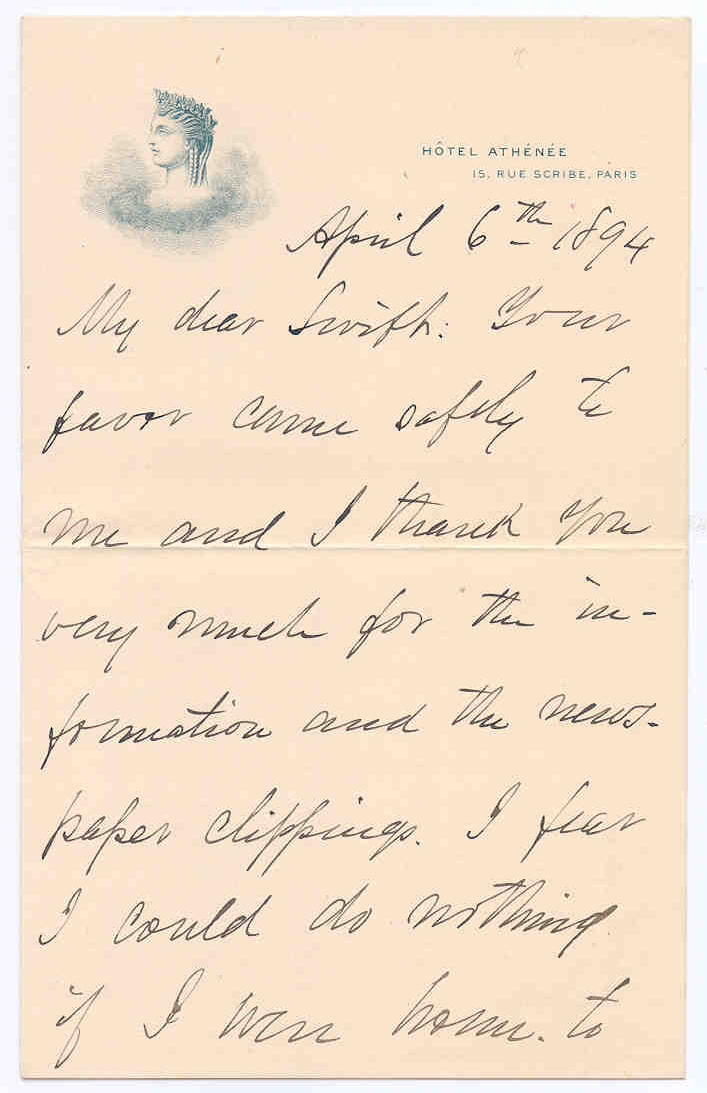 HÔTEL ATHÉNÉE
15, RUE SCRIBE, PARIS
April 6th 1894
My dear Swift: Your
favor came safely to
me and I thank You
very much for the in-
formation and the news-
paper clippings. I fear
I could do nothing
if I were home. to